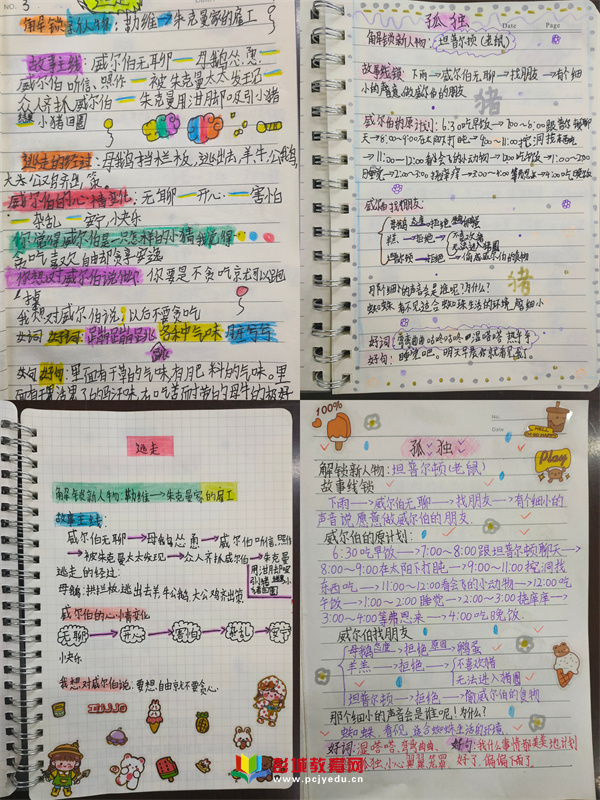 NO. 3
解锁新人物：勒维→朱克曼家的雇工
故事主线：威尔伯无聊—母鹅怂恿—
威尔伯听信、照作—被朱克曼太太发现—
众人齐抓威尔伯—朱克曼用泔脚吸引小猪
小猪回圈
逃走的经过：母鹅档栏板，逃出去，羊牛公鹅
威尔伯的心情变化：无聊—开心—害怕
—杂乱—安宁小快乐
你觉得威尔伯是一只怎样的小猪我觉得
贪吃喜欢自由却贪享安逸
你想对威尔伯说做你要是不贪吃京尤可以跑
掉
我想对威尔伯说，以后不要贪吃
好词
各种气味
好句：里面有干草的气味有肥料的气味。里
孤独
Date Page
解锁新人物：坦普尔顿（老鼠）
故事线锁：下雨→威尔伯无聊→找朋友→有个细
小的声音愿意做威尔伯的朋友
猪
威尔伯的原计划：6:30吃早饭→7:00~8:00跟坦普尔顿聊
天→8:00~9:00在太阳下打吨→9:00~11:00挖洞找东西吃
→11:00~12:00看会飞的小动物→12:00吃午饭→1:00~2:00
睡觉→2:00~3:00挠痒痒→3:00~4:00等费恩来→4:00吃晚饭
威尔伯找朋友：
母鹅 态度 拒绝
羔羊→拒绝→不喜欢猪
无法进入猪圈
坦普尔顿→拒绝→偷威尔伯的食物
猪
那个细小的声音会是谁呢？为什么？
蜘蛛
好句：睡觉吧。明天早晨你就看见我了。
逃走
解锁新人物：勒维→朱克曼家的雇工
故事主线：
威尔伯无聊→母鹅怂恿→威尔伯听信、照作
→被朱克曼太太发现→众人齐抓威尔伯→朱克曼
用泔脚吸
引小猪
逃走的经过：
母鹅：拱拦板逃出去羊牛公鹅大公鸡齐出策
威尔伯的心情变化
无聊→开心→害怕→杂乱→安宁
小快乐
我想对威尔伯说：要想自由就不要贪心。
100%
No.
Date
孤独
Play
解锁新人物：坦普尔顿（老鼠）
故事线锁
下雨→威尔伯无聊→找朋友→有个细小的
声音说愿意做威尔伯的朋友
威尔伯的原计划：
6:30吃早饭→7:00~8:00跟坦普尔顿聊天→
8:00~9:00在太阳下打吨→9:00~11:00挖洞找
东西吃→11:00~12:00看会飞的小动物→12:00吃
午饭→1:00~2:00睡觉→2:00~3:00挠痒痒→
3:00~4:00等费恩来→4:00吃晚饭。
威尔伯找朋友
母鹅 态度 拒绝 原因 鹅蛋
羔羊→拒绝→不喜欢猪
无法进入猪圈
坦普尔顿→拒绝→偷威尔伯的食物
那个细小的声音会是谁呢！为什么！
蜘蛛，看不见，适合蜘蛛生活的环境
好词：湿嗒嗒、弯弯曲曲、好句：我什么事情都美美地计划
孤独、小心翼翼、笼罩 好了，偏偏下雨了。
彭城教育网
www.pcjyedu.cn